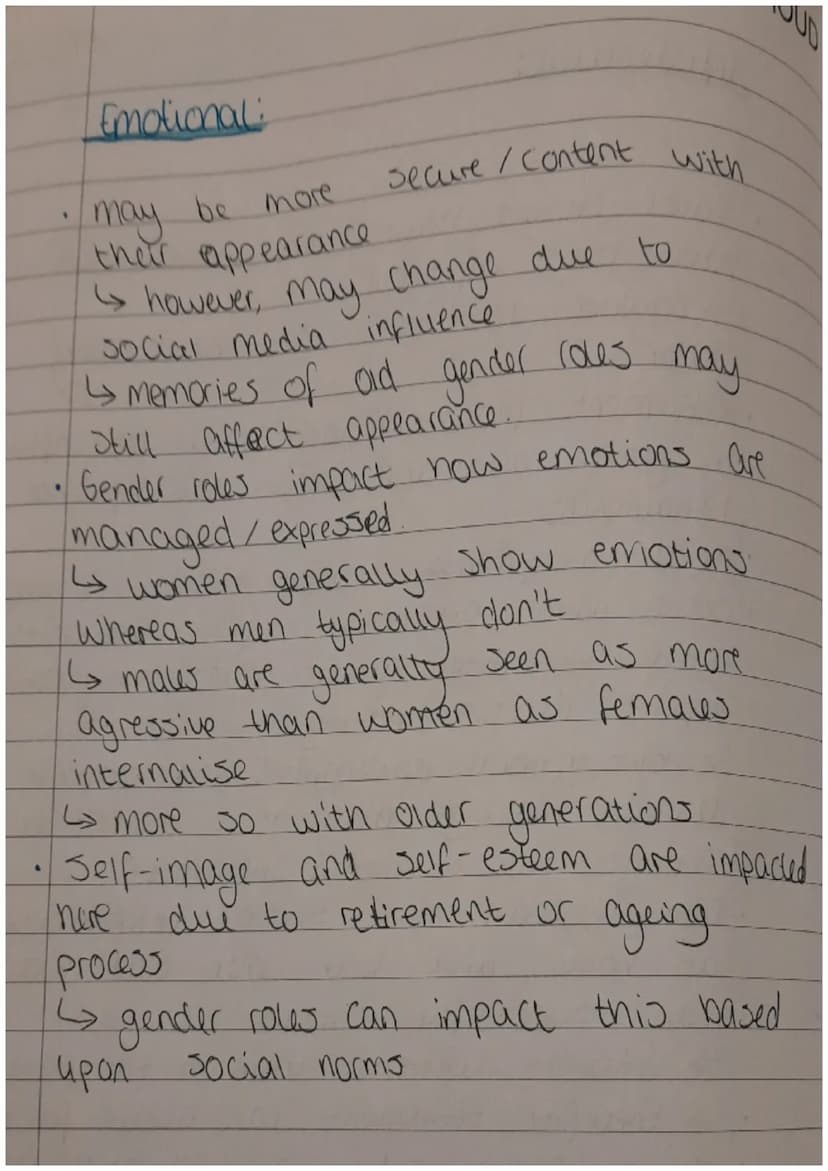 Emotional:
· may be more secure / content with
their appearance
↳ however, may change due to
social media influence
↳ memories of old gender roles may
still affect appearance.
· Gender roles impact how emotions are
managed / expressed.
↳ women generally show emotions
whereas men typically don't
↳ males are generally seen as more
agressive than women as females
internalise
↳ more so with older generations
· Self-image and self-esteem are impacted
here due to retirement or ageing
process
↳ gender roles can impact this based
upon social norms